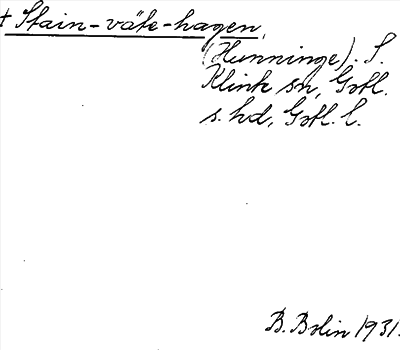 + Stain-väte-hagen,
(Hunninge). S.
Klinte sn, Gotl.
s. hd, Gotl. l.
B. Bolin 1931.